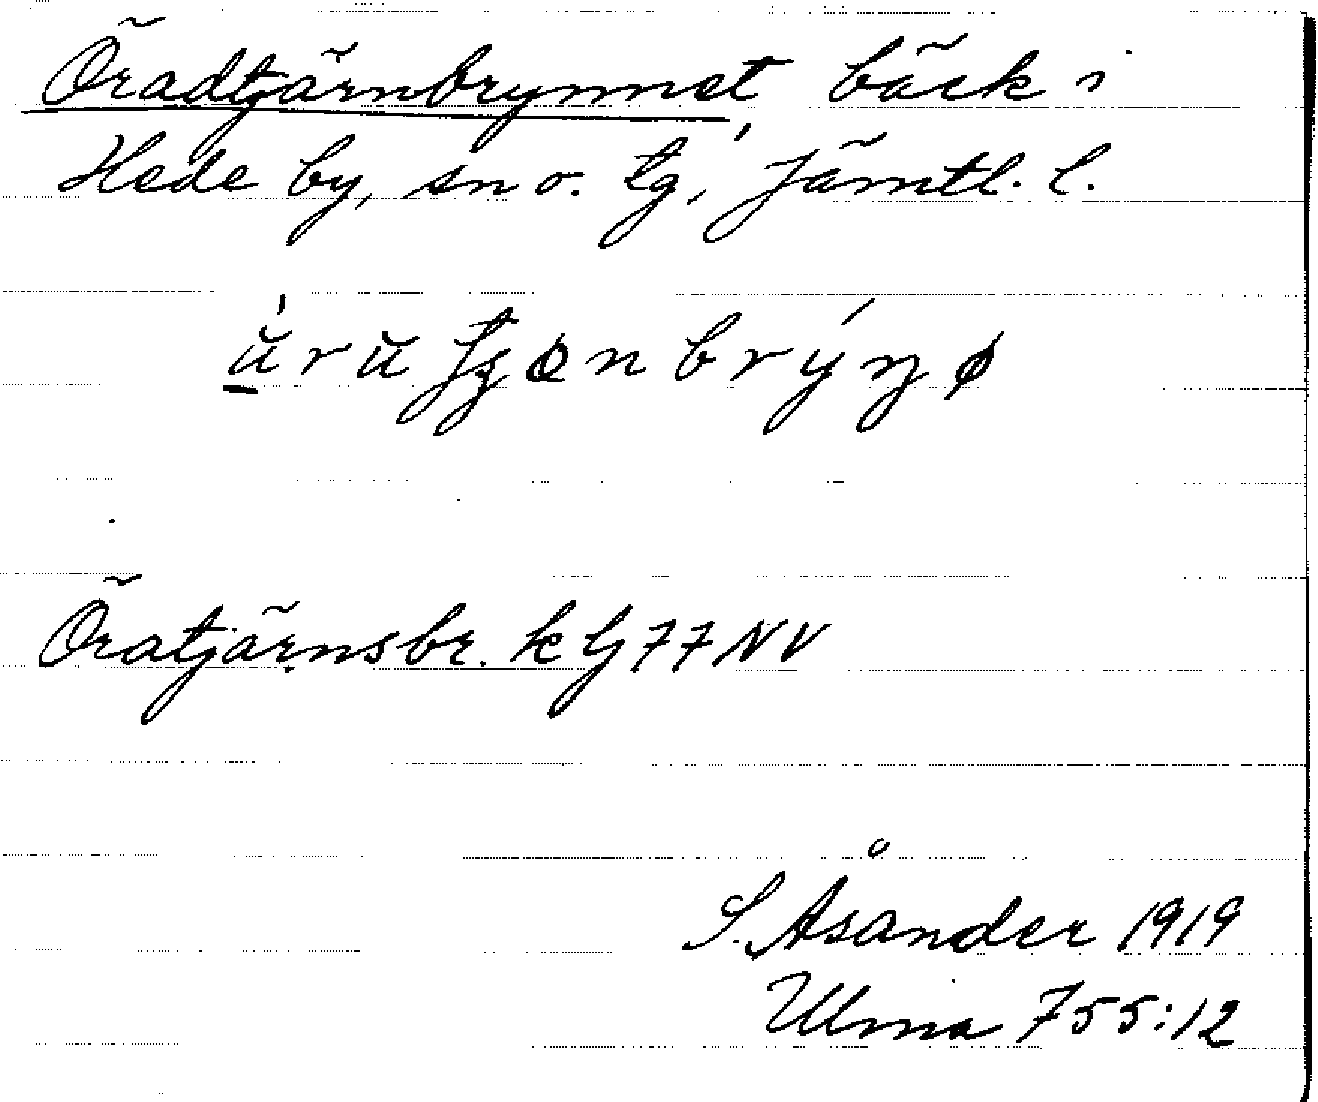 Öradtjärnbrynnet, bäck i
Hede by, sn o. tg, Jämtl. l.
Öratjärnsbr. k G 77 NV
S. Åsander 1919
Ulma 755:12